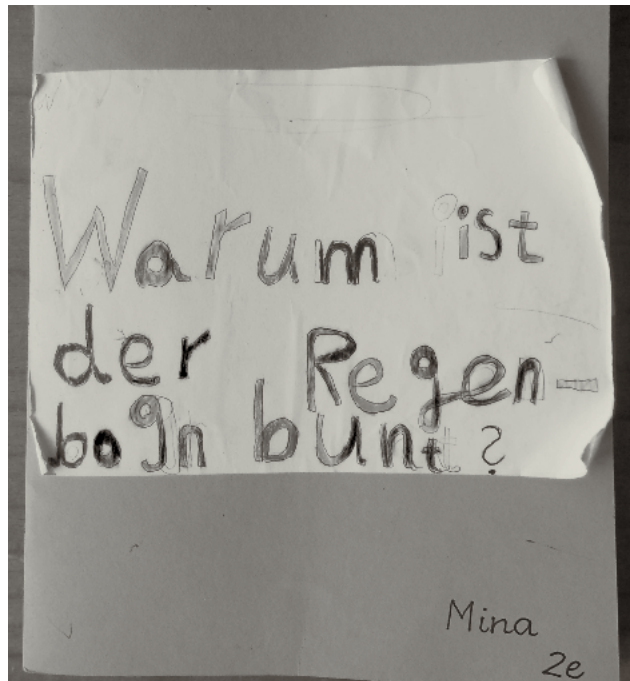 Warum ist
der Regen-
bogn bunt?
Mina
2e